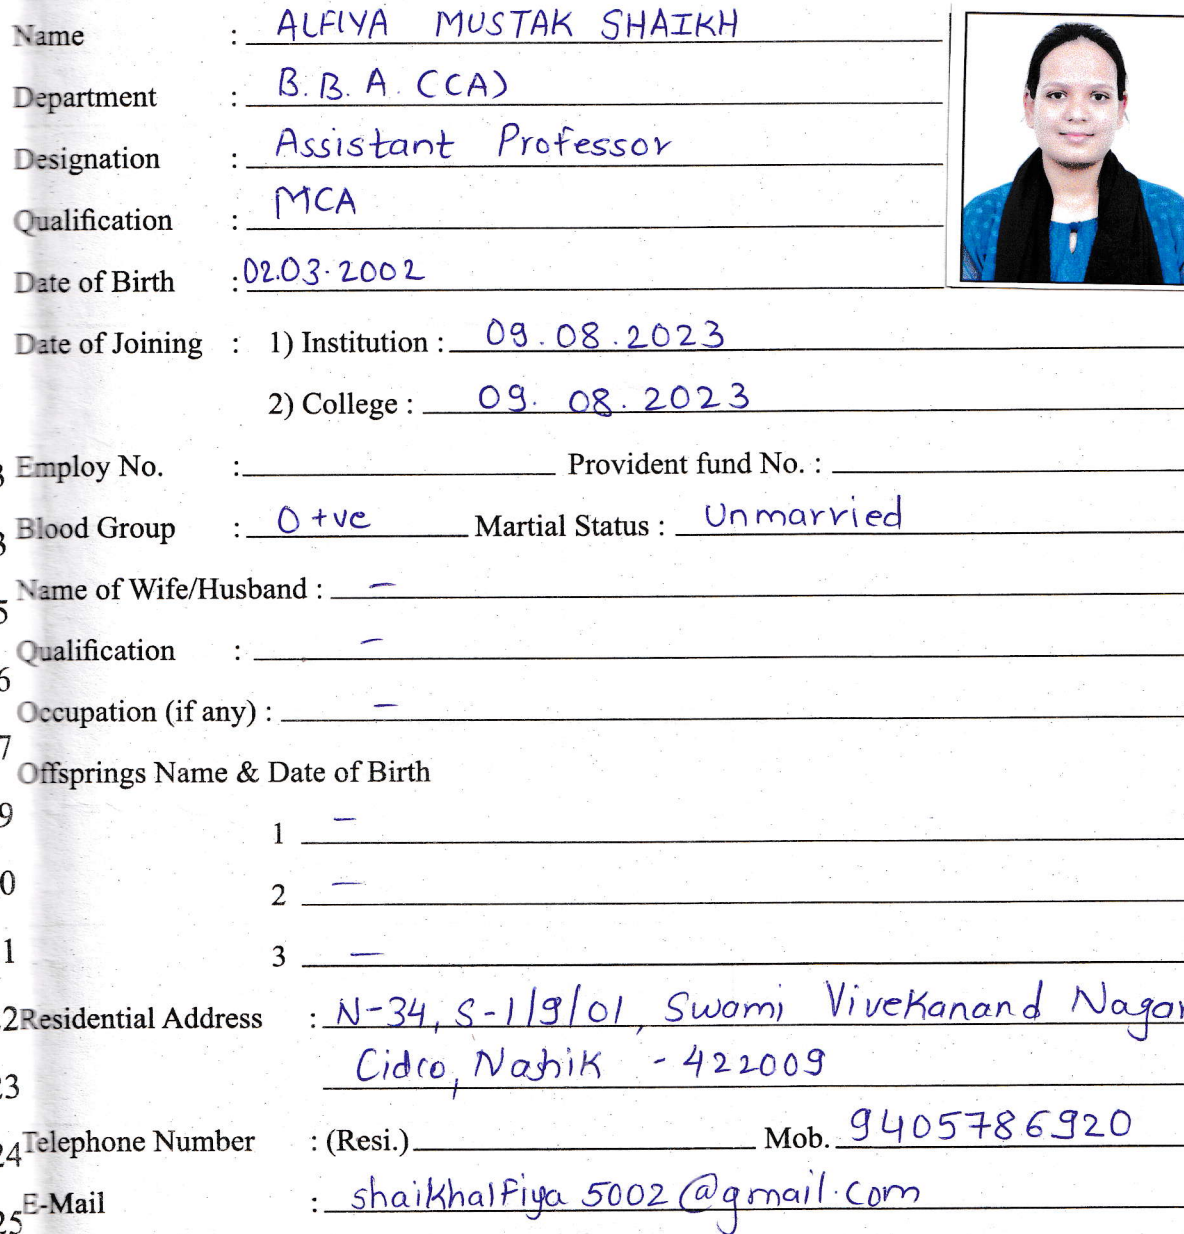 Name : ALFIYA MUSTAK SHAIKH
Department : B.B.A. (CA)
Designation : Assistant Professor
Qualification : MCA
Date of Birth : 02.03.2002
Date of Joining : 1) Institution : 09.08.2023
2) College : 09.08.2023
3 Employ No. : Provident fund No. :
3 Blood Group : O +ve Martial Status : Unmarried
5 Name of Wife/Husband : -
Qualification : -
6
Occupation (if any) : -
7
Offsprings Name & Date of Birth
9
1 -
0
2 -
1
3 -
.2 Residential Address : N-34, S-1/9/01, Swami Vivekanand Nagar
Cidco, Nashik - 422009
23
24 Telephone Number : (Resi.) Mob. 9405786920
25 E-Mail : shaikhalfiya5002@gmail.com